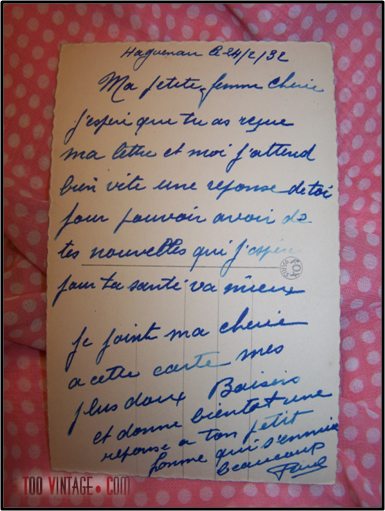 Haguenau le 24/2/32
Ma petite femme cherie
j'espere que tu as reçue
ma lettre et moi j'attend
bien vite une reponse de toi
pour pouvoir avoir de
tes nouvelles qui j'espère
pour ta santé va mieux
je joint ma cherie
a cette carte mes
plus doux Baisers
et donne bientot une
reponse a ton petit
homme qui s'ennuie
beaucoup
Paul
TOO VINTAGE.COM